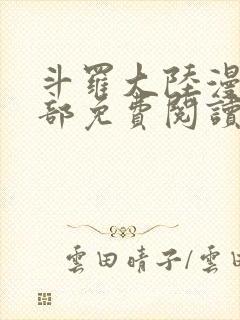 斗羅大陸漫
部免費閱讀
雲田晴子/雲田